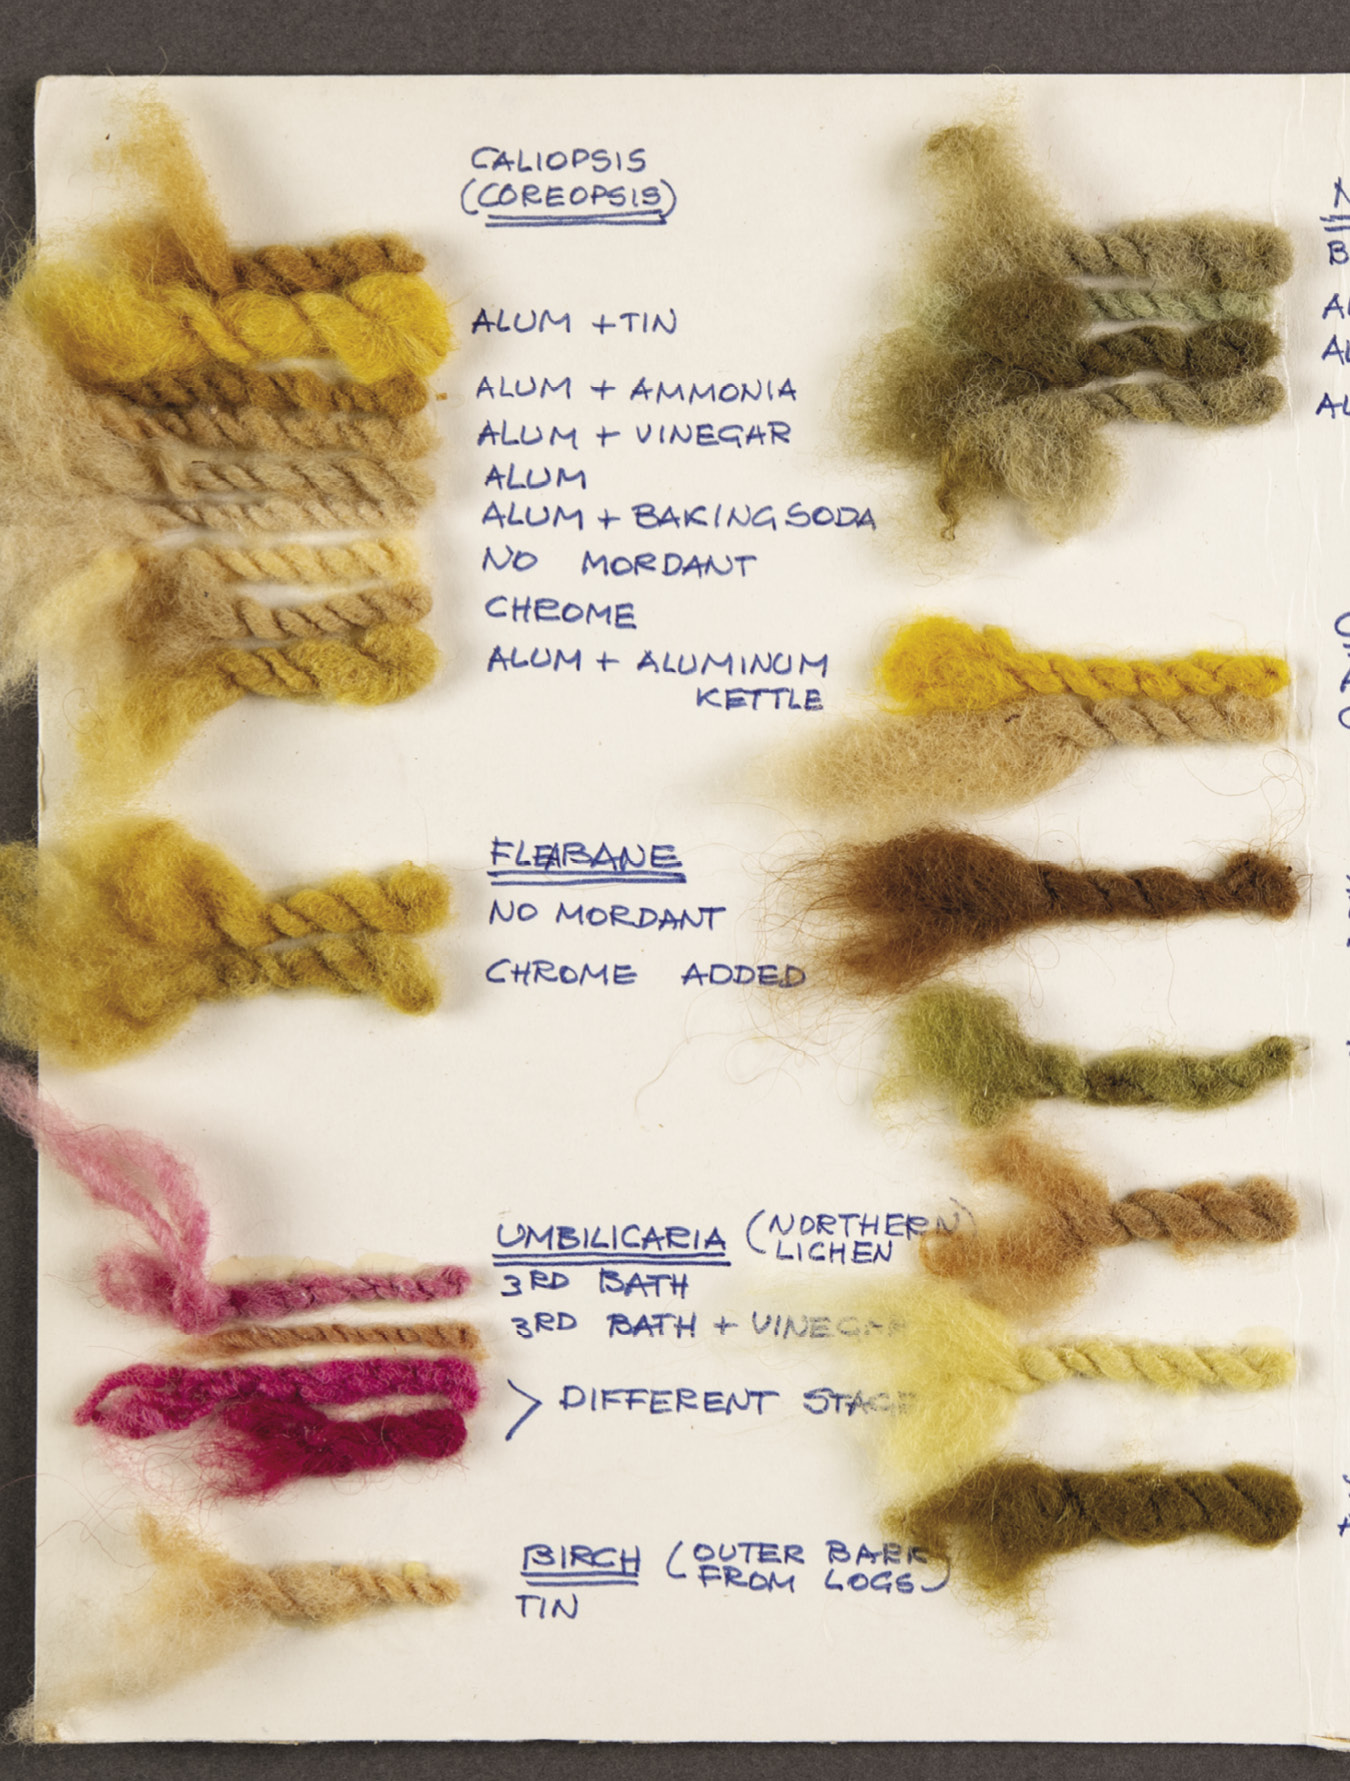 CALIOPSIS
(COREOPSIS)
ALUM + TIN
ALUM + AMMONIA
ALUM + VINEGAR
ALUM
ALUM + BAKING SODA
NO MORDANT
CHROME
ALUM + ALUMINUM
KETTLE
FLEABANE
NO MORDANT
CHROME ADDED
UMBILICARIA (NORTHERN)
LICHEN
3RD BATH
3RD BATH + VINEGAR
> DIFFERENT STAGE
BIRCH (OUTER BARK
FROM LOGS)
TIN